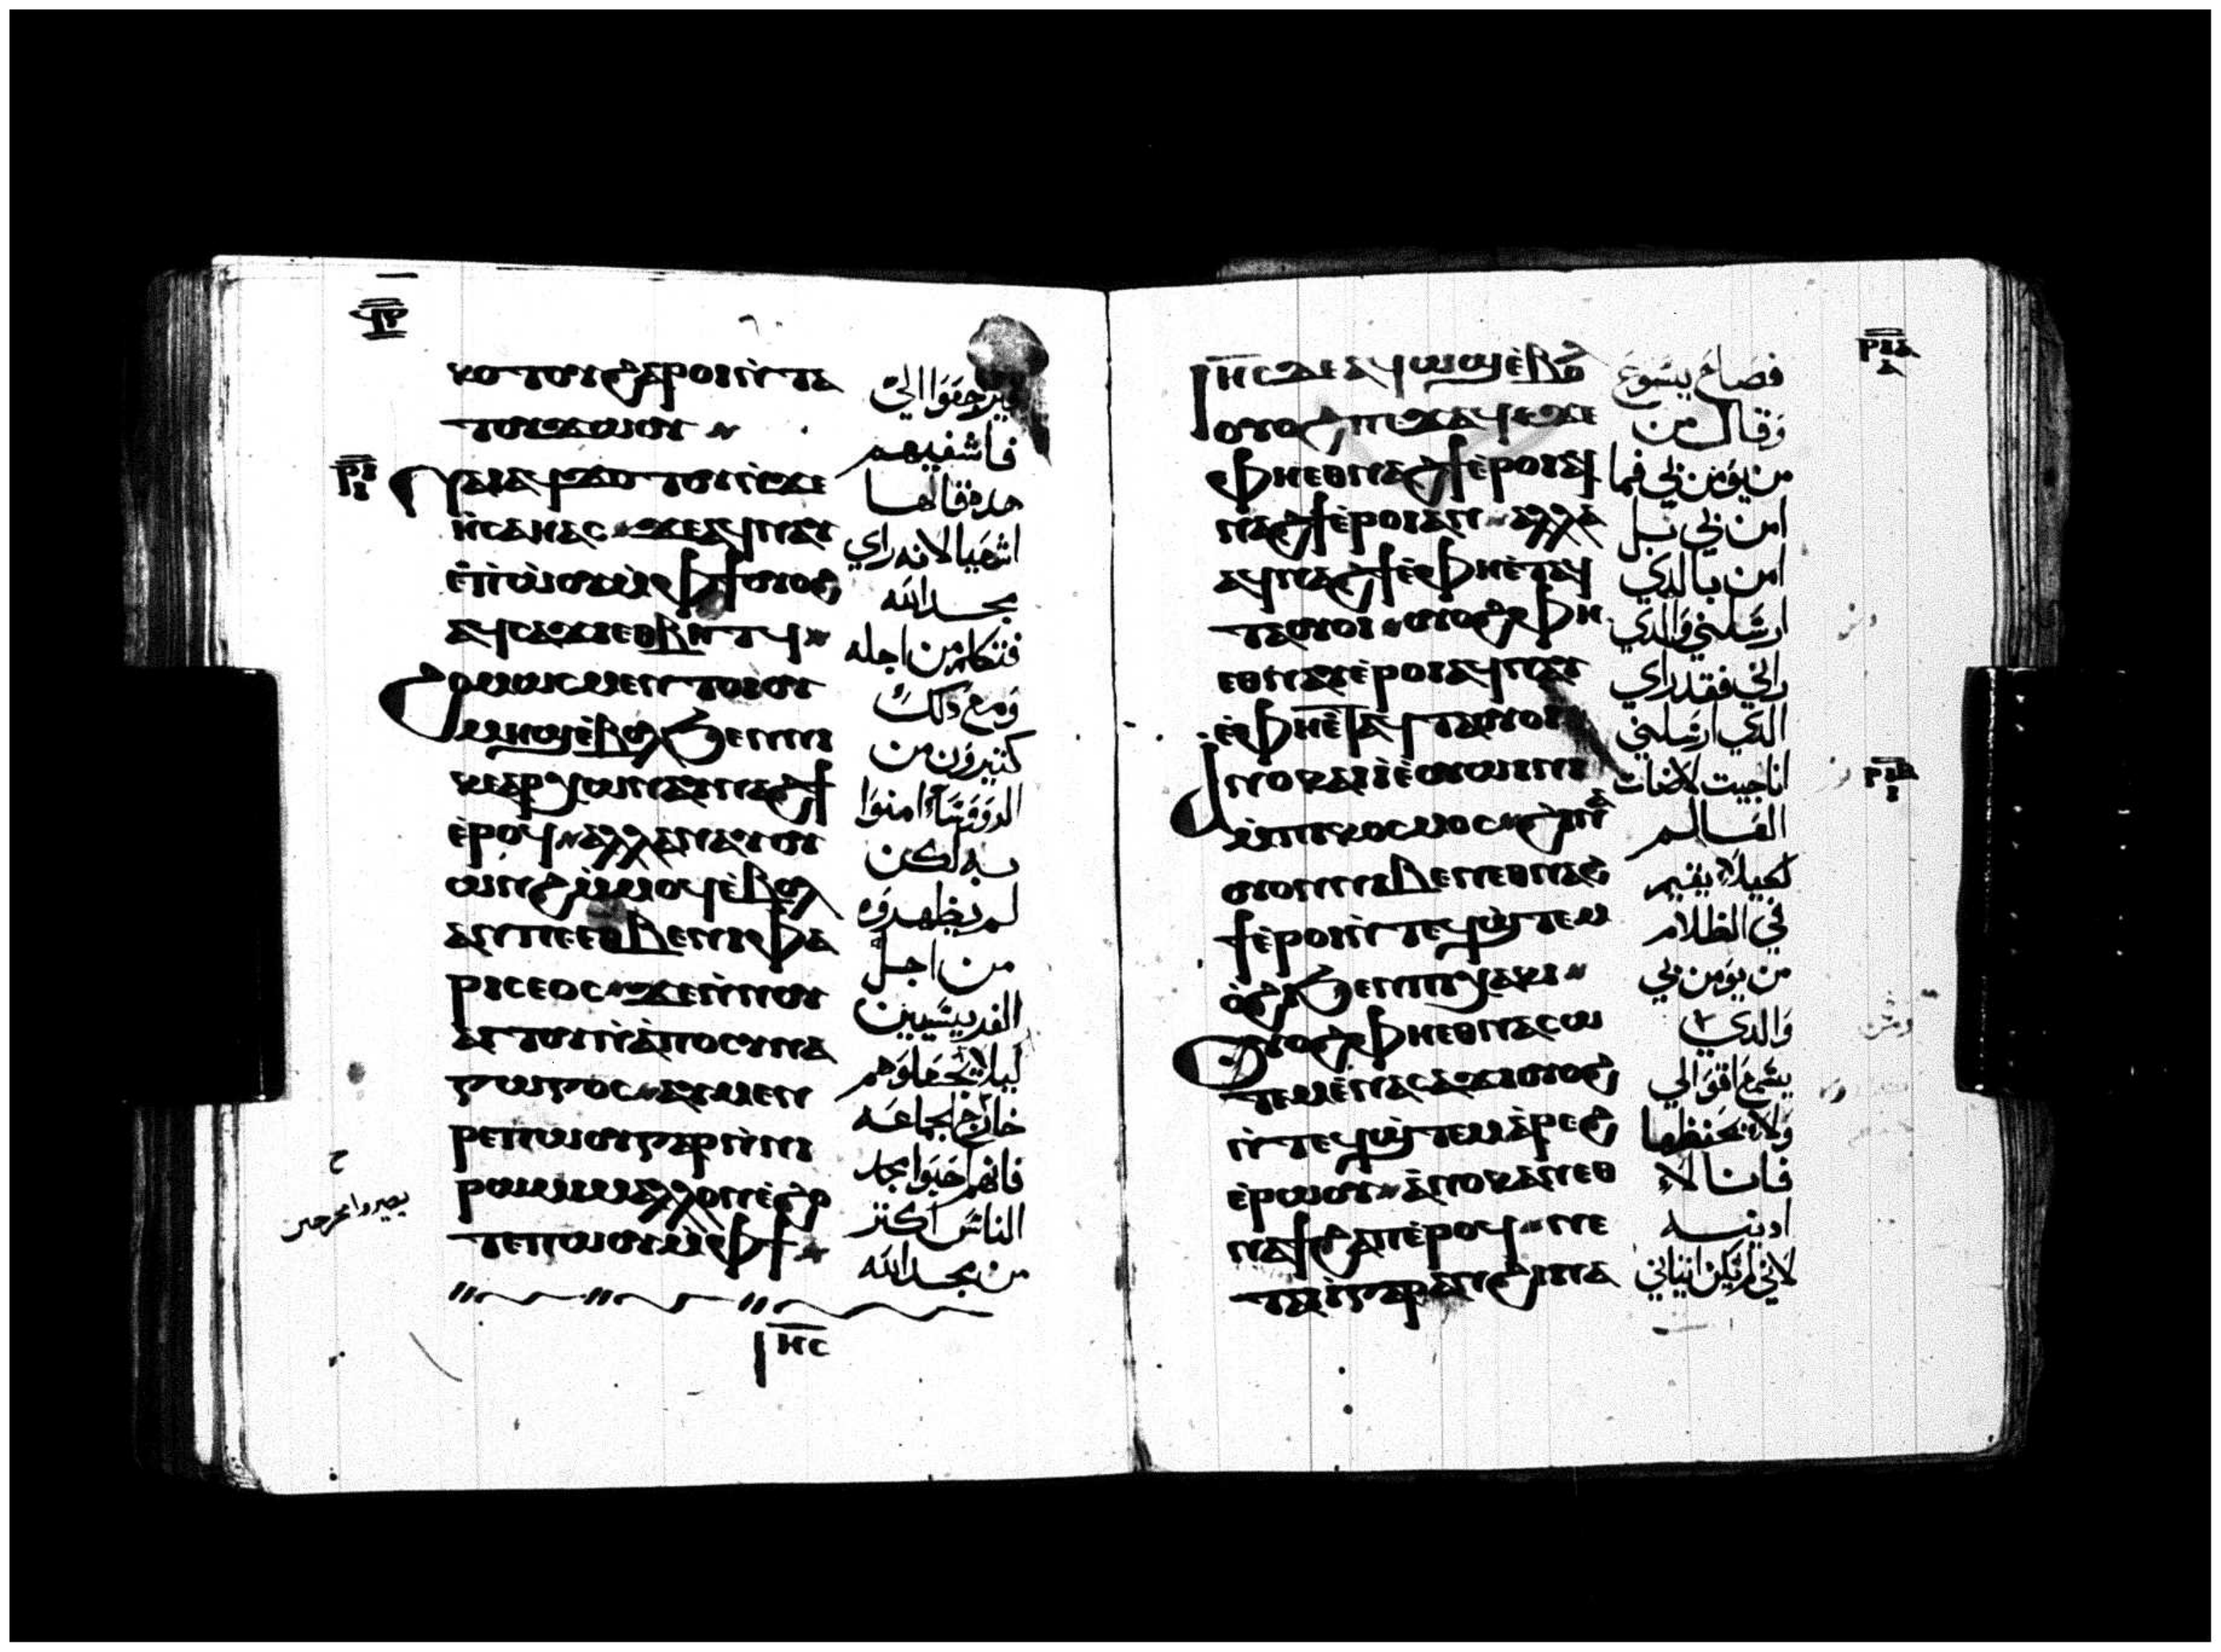 ⲕⲟⲧⲟⲩϩⲁⲣⲟⲓⲛ̀ⲧⲁ
ⲧⲟⲩϫⲱⲟⲩ
ⲛⲁⲓⲁϥϫⲟⲧⲟⲩⲛ̀ϫⲉ
ⲏ̀ⲥⲁⲏⲁⲥ ϫⲉⲁϥⲛⲁⲩ
ⲉ̀ⲡ̀ⲱⲟⲩⲙ̀ⲫϯⲟⲩⲟϩ
ⲁϥⲥⲁϫⲓⲉⲑⲃⲏⲧϥ
ϩⲟⲙⲱⲥⲙⲉⲛⲧⲟⲓⲟⲩ
ⲙⲏϣⲉ̀ⲃⲟⲗϧⲉⲛⲛⲓ
ⲕⲉⲁⲣⲭⲱⲛⲁⲩⲛⲁϩϯ
ⲉ̀ⲣⲟϥ ⲁⲗⲗⲁⲛⲁⲩⲟⲩ
ⲱⲛϩⲙ̀ⲙⲟϥⲉ̀ⲃⲟⲗ
ⲁⲛⲡⲉⲉⲑⲃⲉⲛⲓⲫⲁ
ⲣⲓⲥⲉⲟⲥ ϫⲉⲛ̀ⲛⲟⲩ
ⲁⲓⲧⲟⲩⲛ̀ⲁⲡⲟⲥⲩⲛⲁ
ⲅⲱⲅⲟⲥ ⲁⲩⲙⲉⲛ
ⲣⲉⲡⲱⲟⲩⲅⲁⲣⲛ̀ⲛⲓ
ⲣⲱⲙⲓⲙⲁⲗⲗⲟⲛⲉ̀ϩⲟ
ⲧⲉⲡⲱⲟⲩⲙ̀ⲫϯ
ⲓⲏⲥ
فيرجعوا الي
فاشفيهم
هده قالها
اشعيا لانه راي
مجد الله
فتكلم من اجله
ومع دلك
كثيرون من
الروسا امنوا
به لكن
لم يظهروه
من اجل
الفريسيين
ليلا يجعلوهم
خارج الجماعه
فانهم احبوا مجد
الناس اكثر
من مجد الله
ⲣⲓⲁ
ⲓⲏⲥⲇⲉⲁϥⲱϣⲉ̀ⲃⲟⲗ
ⲟⲩⲟϩⲡⲉϫⲁϥϫⲉ
ⲫⲏⲉⲑⲛⲁϩϯⲉ̀ⲣⲟⲓⲁϥ
ⲛⲁϩϯⲉ̀ⲣⲟⲓⲁⲛ ⲁⲗⲗⲁ
ⲁϥⲛⲁϩϯⲉ̀ⲫⲏⲉ̀ⲧⲁϥ
ⲧⲁⲟⲩⲟⲓ ⲟⲩⲟϩⲫⲏ
ⲉⲑⲛⲁⲩⲉ̀ⲣⲟⲓⲁϥⲛⲁⲩ
ⲉ̀ⲫⲏⲉ̀ⲧⲁϥⲧⲁⲟⲩⲟⲓ
ⲁⲛⲟⲕⲁⲓⲓ̀ⲉ̀ⲟⲩⲱⲓⲛⲓ
ⲙ̀ⲡⲓⲕⲟⲥⲙⲟⲥ ϩⲓⲛⲁ
ⲟⲩⲟⲛⲛⲓⲃⲉⲛⲉⲑⲛⲁϩ
ϯⲉ̀ⲣⲟⲓⲛ̀ⲧⲉϥϣ̀ⲧⲉⲙ
ⲟ̀ϩⲓϧⲉⲛⲡⲓⲭⲁⲕⲓ
ⲟⲩⲟϩⲫⲏⲉⲑⲛⲁⲥⲱ
ⲧⲉⲙⲉ̀ⲛⲁⲥⲁϫⲓⲟⲩⲟϩ
ⲛ̀ⲧⲉϥϣ̀ⲧⲉⲙⲁ̀ⲣⲉϩ
ⲉ̀ⲣⲱⲟⲩ ⲁⲛⲟⲕⲁⲛⲉⲑ
ⲛⲁϯϩⲁⲡⲉ̀ⲣⲟϥ ⲛⲉ
ⲧⲁⲓ̀ⲅⲁⲣⲁⲛϩⲓⲛⲁ
فصاح يسوع
وقال من
من يومن بي فما
امن بي بل
امن بالدي
ارسلني والدي
راني فقد راي
الدي ارسلني
انا جيت لاضات
العالم
لكيلا يقيم
في الظلام
من يومن بي
والدي
يسمع اقوالي
ولا يحفظها
فانا لا
ادينه
لاني لم يكن اتياني